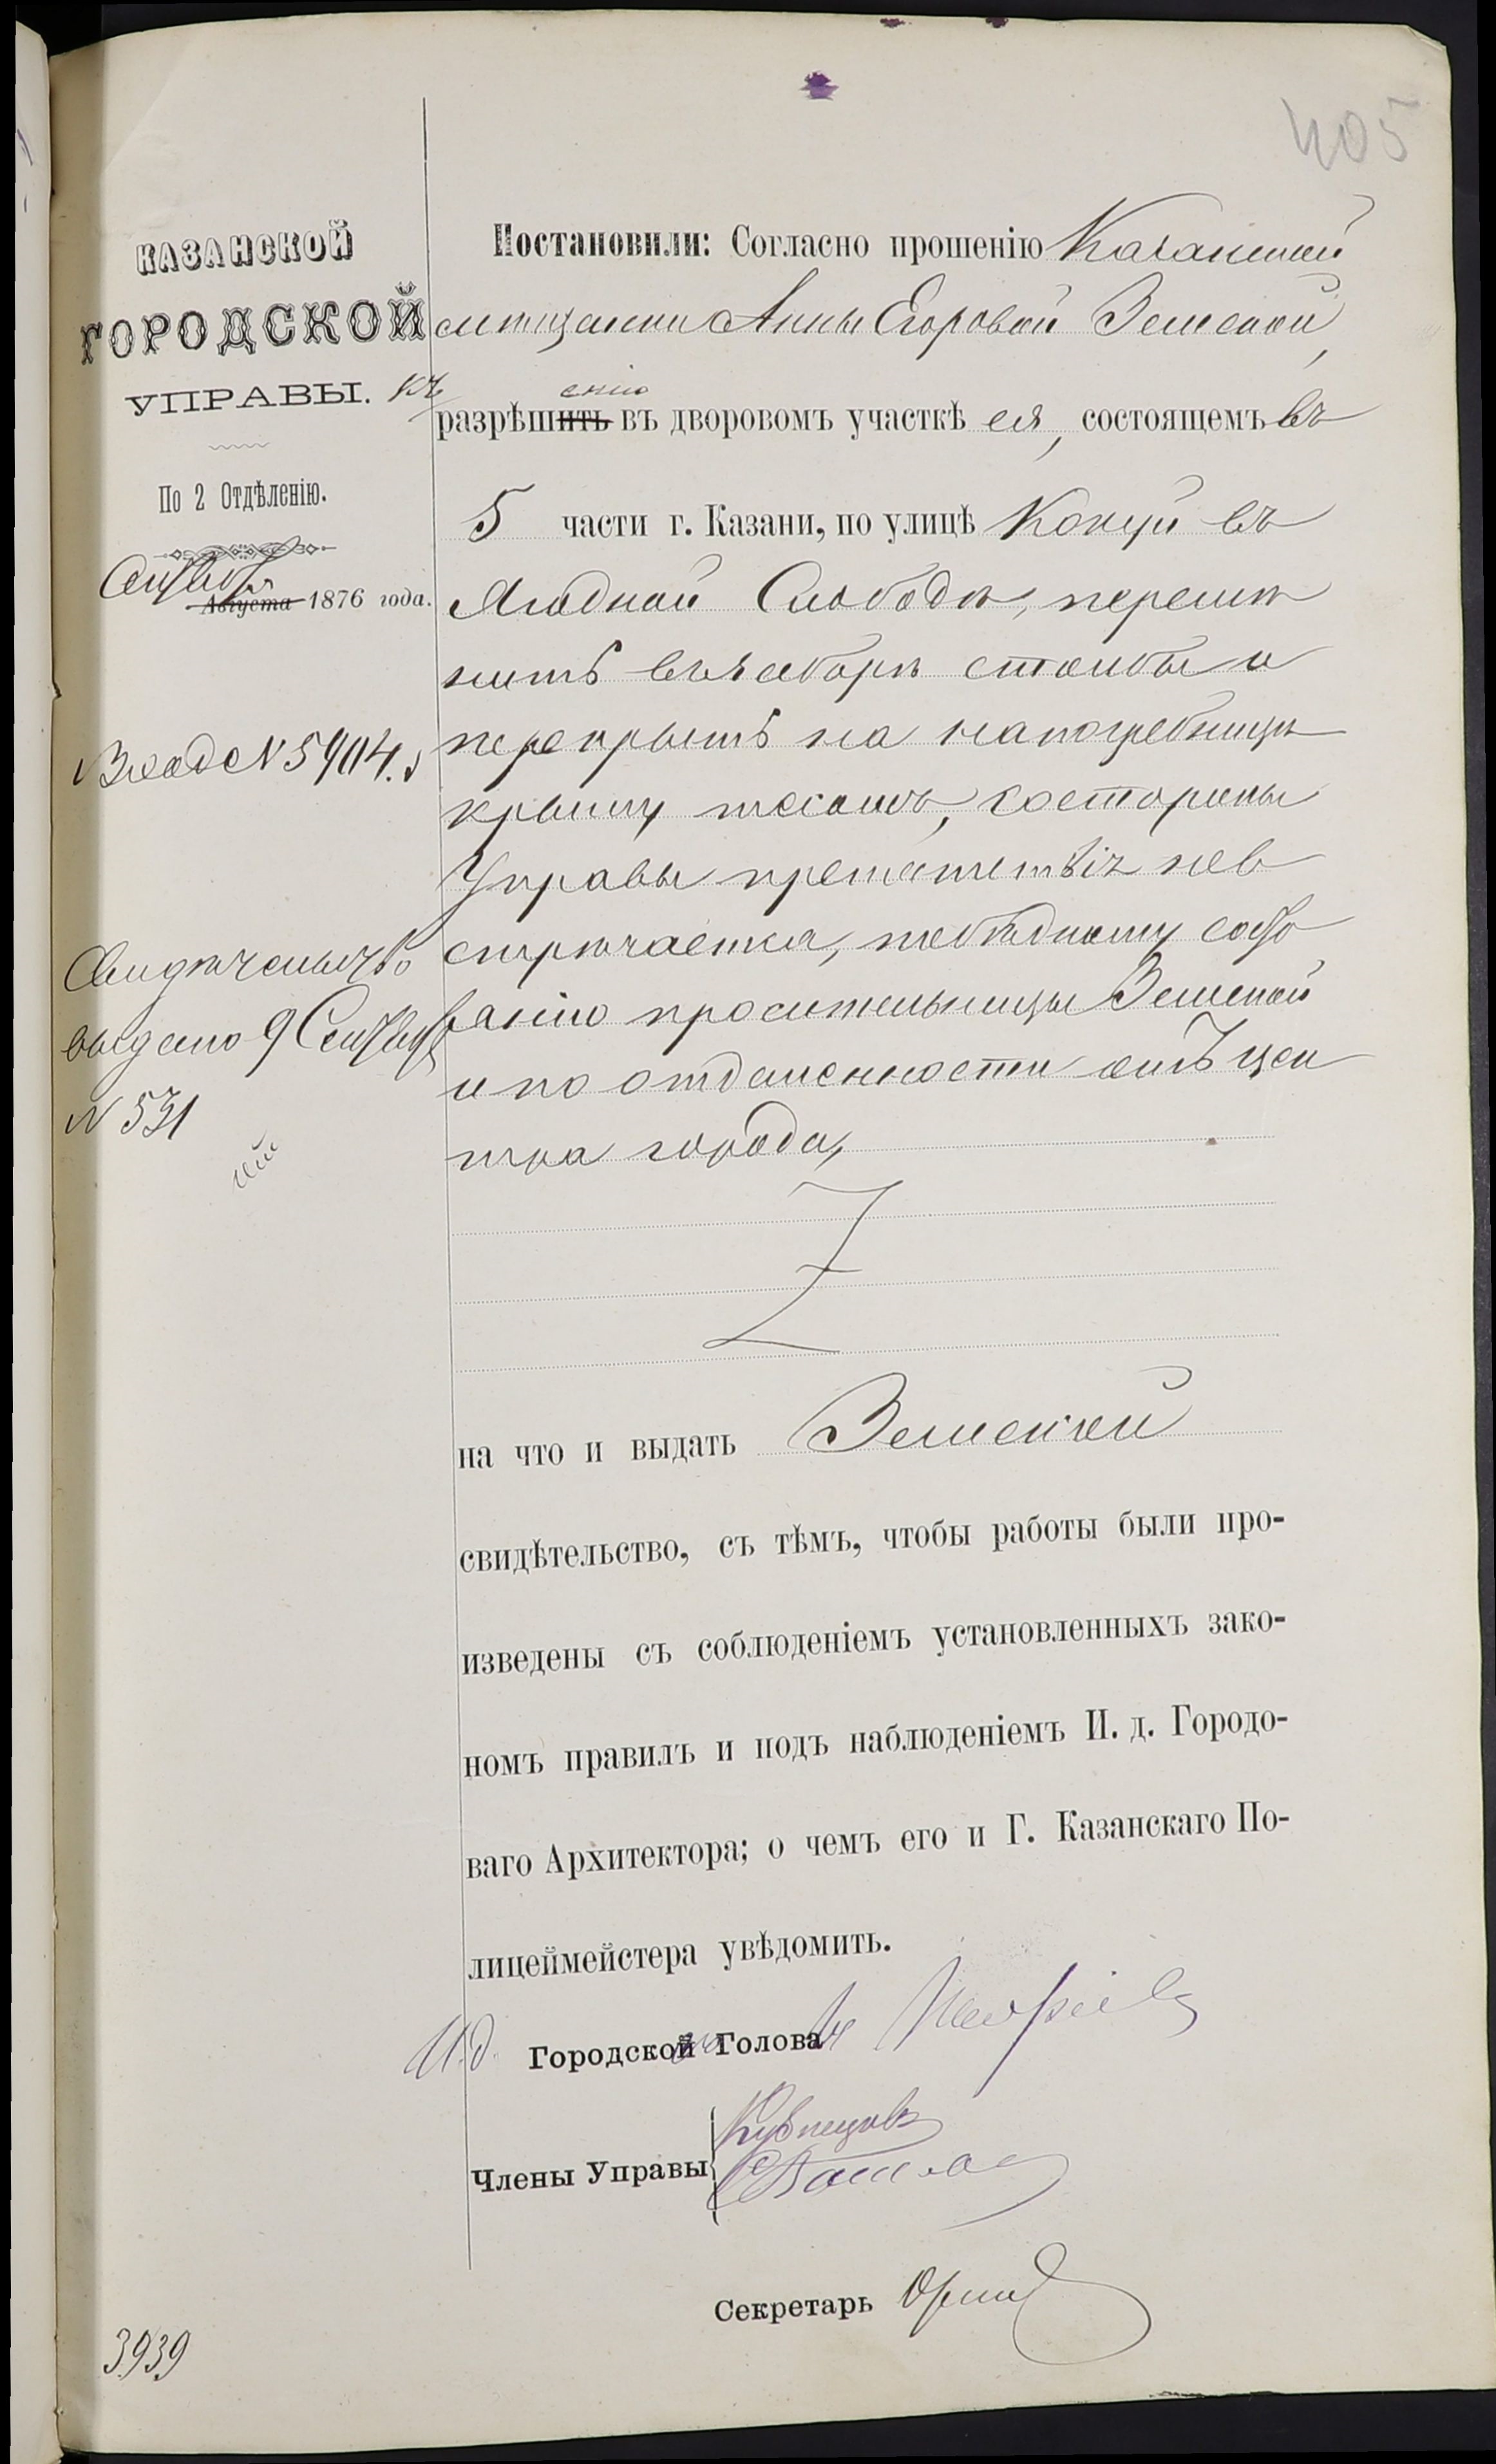 405
КАЗАНСКОЙ
ГОРОДСКОЙ
УПРАВЫ.
По 2 Отдѣленію.
Сентября
Августа 1876 года.
Вход №5904.
выдано 9 Сентября
N 531
3939
Постановили: Согласно прошенію Казанской
мѣщанки Анны Егоровой Земской,
къ разрѣшить енію въ дворовомъ участкѣ ея, состоящемъ въ
5 части г. Казани, по улицѣ Кокуй въ
Ягодной Слободѣ, перемѣ
нить въ заборѣ столбы и
перекрыть на напогребницѣ
крышу тесомъ, со стороны
Управы препятствія не в
стрѣчается, по бѣдному состо
янію просительницы Земской
и по отдаленности отъ цен
тра города,
на что и выдать Земской
свидѣтельство, съ тѣмъ, чтобы работы были про-
изведены съ соблюденіемъ установленныхъ зако-
номъ правилъ и подъ наблюденіемъ И. д. Городо-
ваго Архитектора; о чемъ его и Г. Казанскаго По-
лицеймейстера увѣдомить.
И.д. Городской Голова
Члены Управы Кузнецовъ
Секретарь